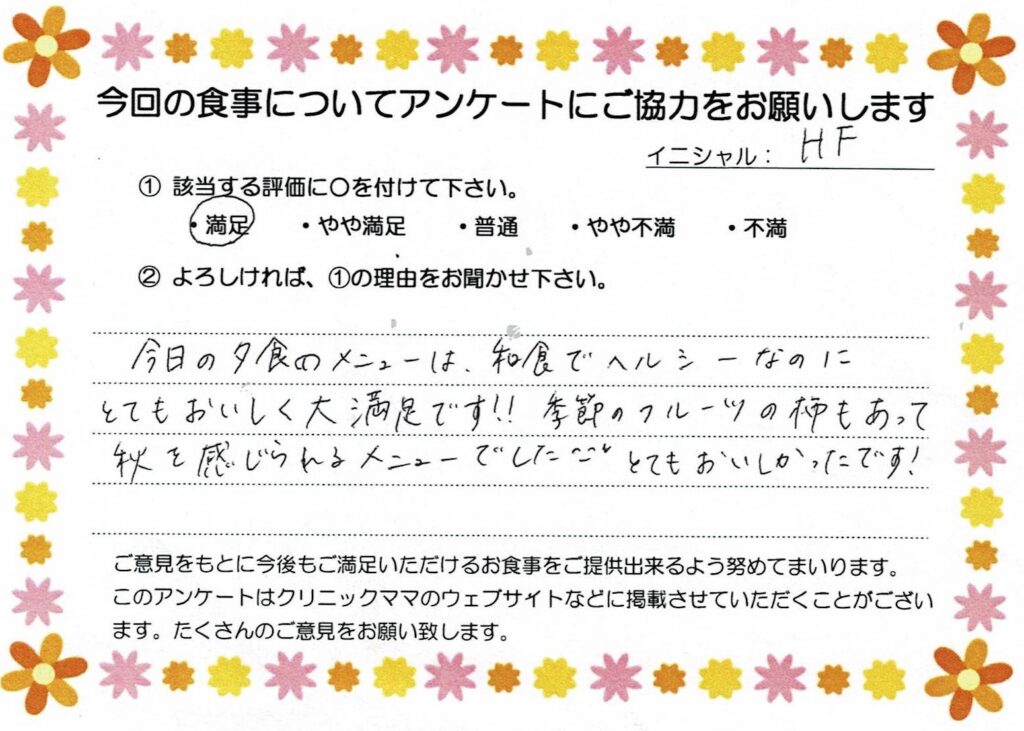 今回の食事についてアンケートにご協力をお願いします
イニシャル： HF
① 該当する評価に〇を付けて下さい。
・満足 ・やや満足 ・普通 ・やや不満 ・不満
② よろしければ、①の理由をお聞かせ下さい。
今日の夕食のメニューは、和食でヘルシーなのに
とてもおいしく大満足です!! 季節のフルーツの柿もあって
秋を感じられるメニューでした^^♥ とてもおいしかったです!
ご意見をもとに今後もご満足いただけるお食事をご提供出来るよう努めてまいります。
このアンケートはクリニックママのウェブサイトなどに掲載させていただくことがござい
ます。たくさんのご意見をお願い致します。